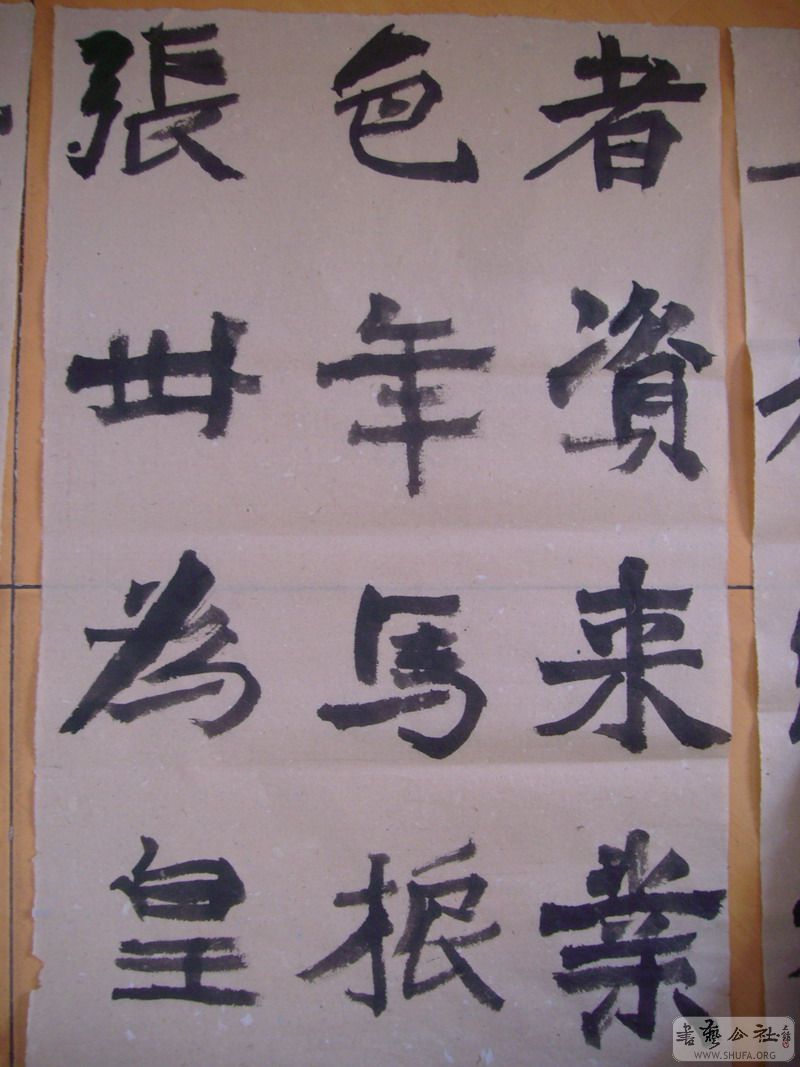 者資来業
色年馬
張丗為皇
書藝公社
WWW.SHUFA.ORG